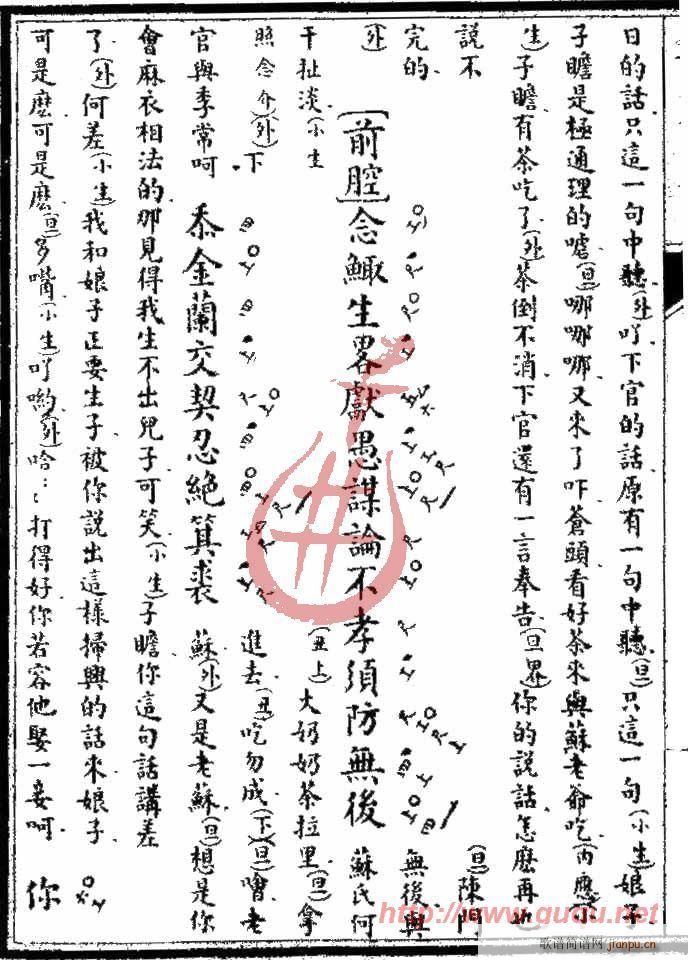 日的話只這一句中聽(外)吖下官的話原有一句中聽(旦)只這一句(小生)娘子
子瞻是極通理的噓(旦)哪哪哪又來了吓蒼頭看好茶來與蘇老爺吃(內應介
生)子瞻有茶吃了(外)茶倒不消下官還有一言奉告(旦界)你的說話怎麽再也
說不 (旦)陳門
完的 無後與
(外) [前腔]念鯫生畧獻愚謀論不孝須防無後 蘇氏何
干扯淡(小生 (丑上)大奶奶茶拉里(旦)拿
照念介)(外)下 進去(丑)吃勿成(下)(旦)噲老
官與季常呵 忝金蘭交契忍絕箕裘 蘇(外)又是老蘇(旦)想是你
會麻衣相法的那見得我生不出兒子可笑(小生)子瞻你這句話講差
了(外)何差(小生)我和娘子正要生子被你說出這樣掃興的話來娘子
可是麽可是麽(旦)多嘴(小生)吖喲(外)哈打得好你若容他娶一妾呵 你
http://www.guqu.net
歌谱简谱网
jianpu.cn